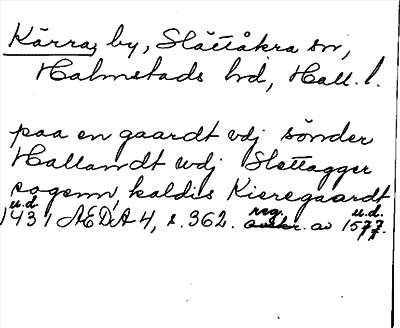 Kärra, by, Slättåkra sn,
Halmstads hd, Hall. l.
paa en gaardt vdj sönder
Hallandt wdj Slettagger
sogenn, kaldis Kieregaardt
u.d. 1431 ÆDA 4, s. 362. reg. avskr. av u.d. 1577.